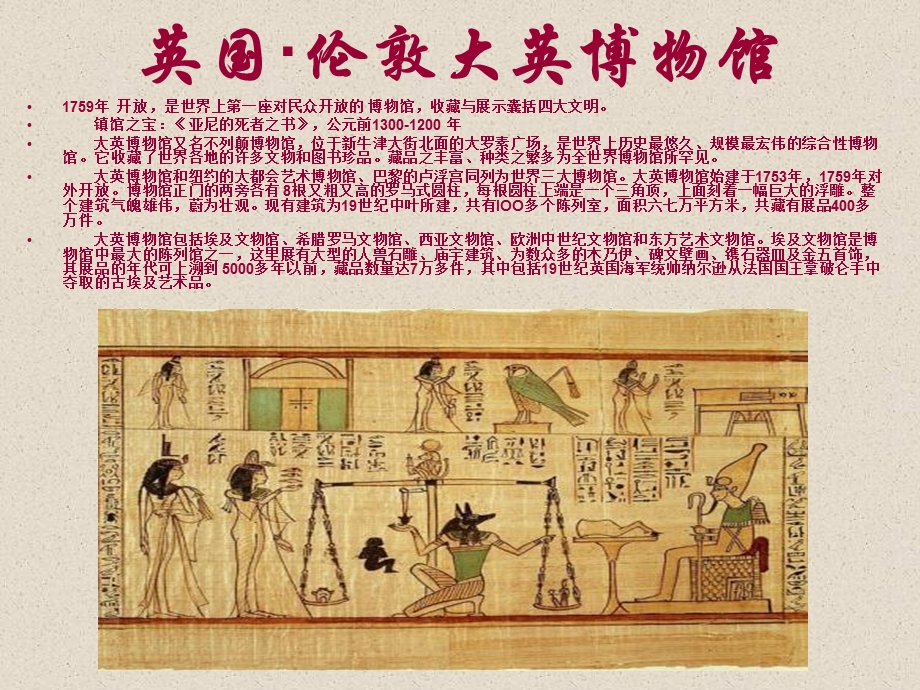 英国·伦敦大英博物馆
• 1759年 开放，是世界上第一座对民众开放的 博物馆，收藏与展示囊括四大文明。
• 镇馆之宝：《 亚尼的死者之书》，公元前1300-1200 年
• 大英博物馆又名不列颠博物馆，位于新牛津大街北面的大罗素广场，是世界上历史最悠久、规模最宏伟的综合性博物
馆。它收藏了世界各地的许多文物和图书珍品。藏品之丰富、种类之繁多为全世界博物馆所罕见。
• 大英博物馆和纽约的大都会艺术博物馆、巴黎的卢浮宫同列为世界三大博物馆。大英博物馆始建于1753年，1759年对
外开放。博物馆正门的两旁各有 8根又粗又高的罗马式圆柱，每根圆柱上端是一个三角顶，上面刻着一幅巨大的浮雕。整
个建筑气魄雄伟，蔚为壮观。现有建筑为19世纪中叶所建，共有IOO多个陈列室，面积六七万平方米，共藏有展品400多
万件。
• 大英博物馆包括埃及文物馆、希腊罗马文物馆、西亚文物馆、欧洲中世纪文物馆和东方艺术文物馆。埃及文物馆是博
物馆中最大的陈列馆之一，这里展有大型的人兽石雕、庙宇建筑、为数众多的木乃伊、碑文壁画、镌石器皿及金五首饰，
其展品的年代可上溯到 5000多年以前，藏品数量达7万多件，其中包括19世纪英国海军统帅纳尔逊从法国国王拿破仑手中
夺取的古埃及艺术品。